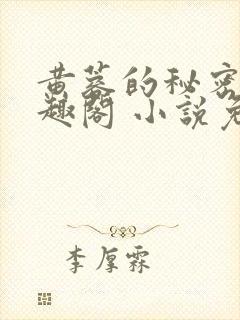 黄墓的秘密
趣阁 小說免
李厚霖